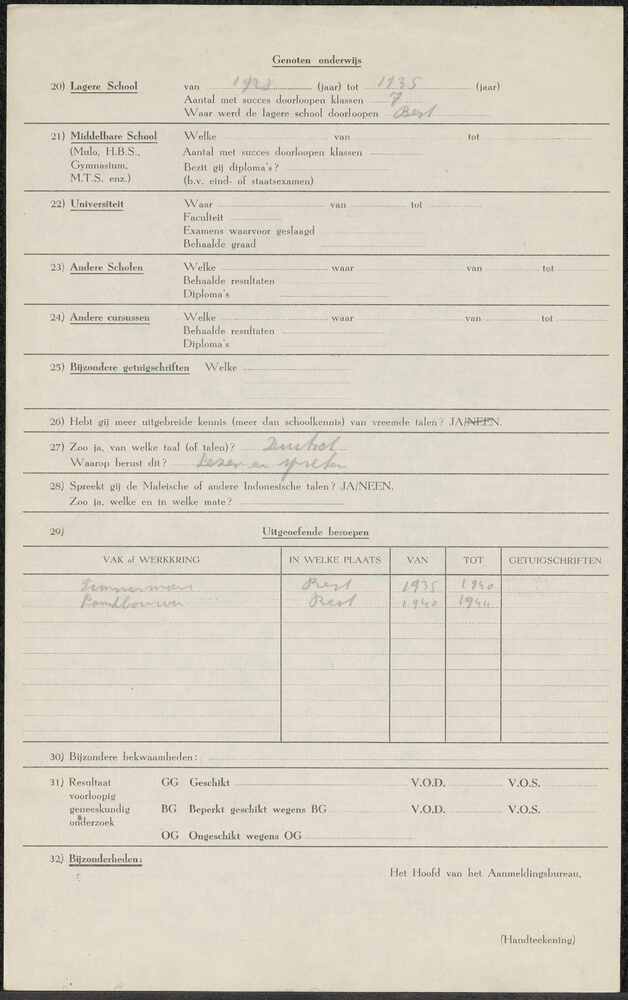 Genoten onderwijs
20) Lagere School van 1928 (jaar) tot 1935 (jaar)
Aantal met succes doorloopen klassen 7
Waar werd de lagere school doorloopen Best
21) Middelbare School Welke van tot
(Mulo, H.B.S., Aantal met succes doorloopen klassen
Gymnasium, Bezit gij diploma's?
M.T.S. enz.) (b.v. eind- of staatsexamen)
22) Universiteit Waar van tot
Faculteit
Examens waarvoor geslaagd
Behaalde graad
23) Andere Scholen Welke waar van tot
Behaalde resultaten
Diploma's
24) Andere cursussen Welke waar van tot
Behaalde resultaten
Diploma's
25) Bijzondere getuigschriften Welke
26) Hebt gij meer uitgebreide kennis (meer dan schoolkennis) van vreemde talen? JA/NEEN.
27) Zoo ja, van welke taal (of talen)?
Waarop berust dit? Lezen en spreken
28) Spreekt gij de Maleische of andere Indonesische talen? JA/NEEN.
Zoo ja, welke en in welke mate?
29) Uitgeoefende beroepen
VAK of WERKKRING IN WELKE PLAATS VAN TOT GETUIGSCHRIFTEN
Timmerman Best 1935 1940
Landbouwer Best 1940 1944
30) Bijzondere bekwaamheden:
31) Resultaat GG Geschikt V.O.D. V.O.S.
voorloopig
geneeskundig BG Beperkt geschikt wegens BG V.O.D. V.O.S.
onderzoek
OG Ongeschikt wegens OG
32) Bijzonderheden:
Het Hoofd van het Aanmeldingsbureau,
(Handteekening)